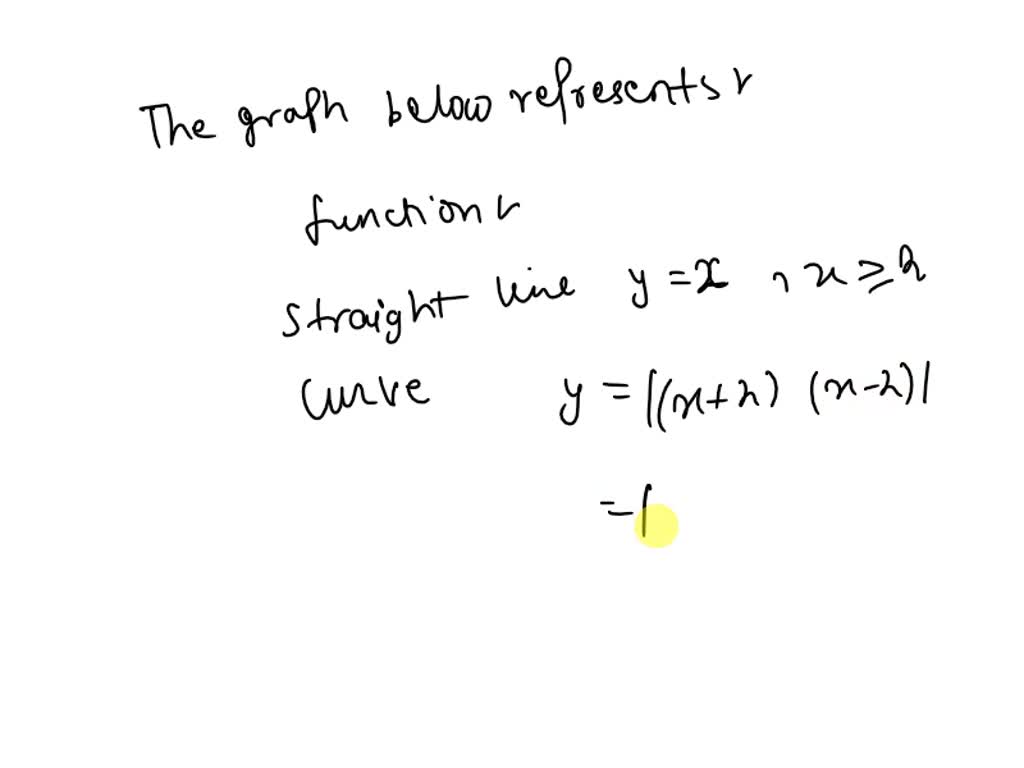 The graph below represents r
function r
straight line y = x , x ≥ 2
curve y = |(x+2) (x-2)|
= |